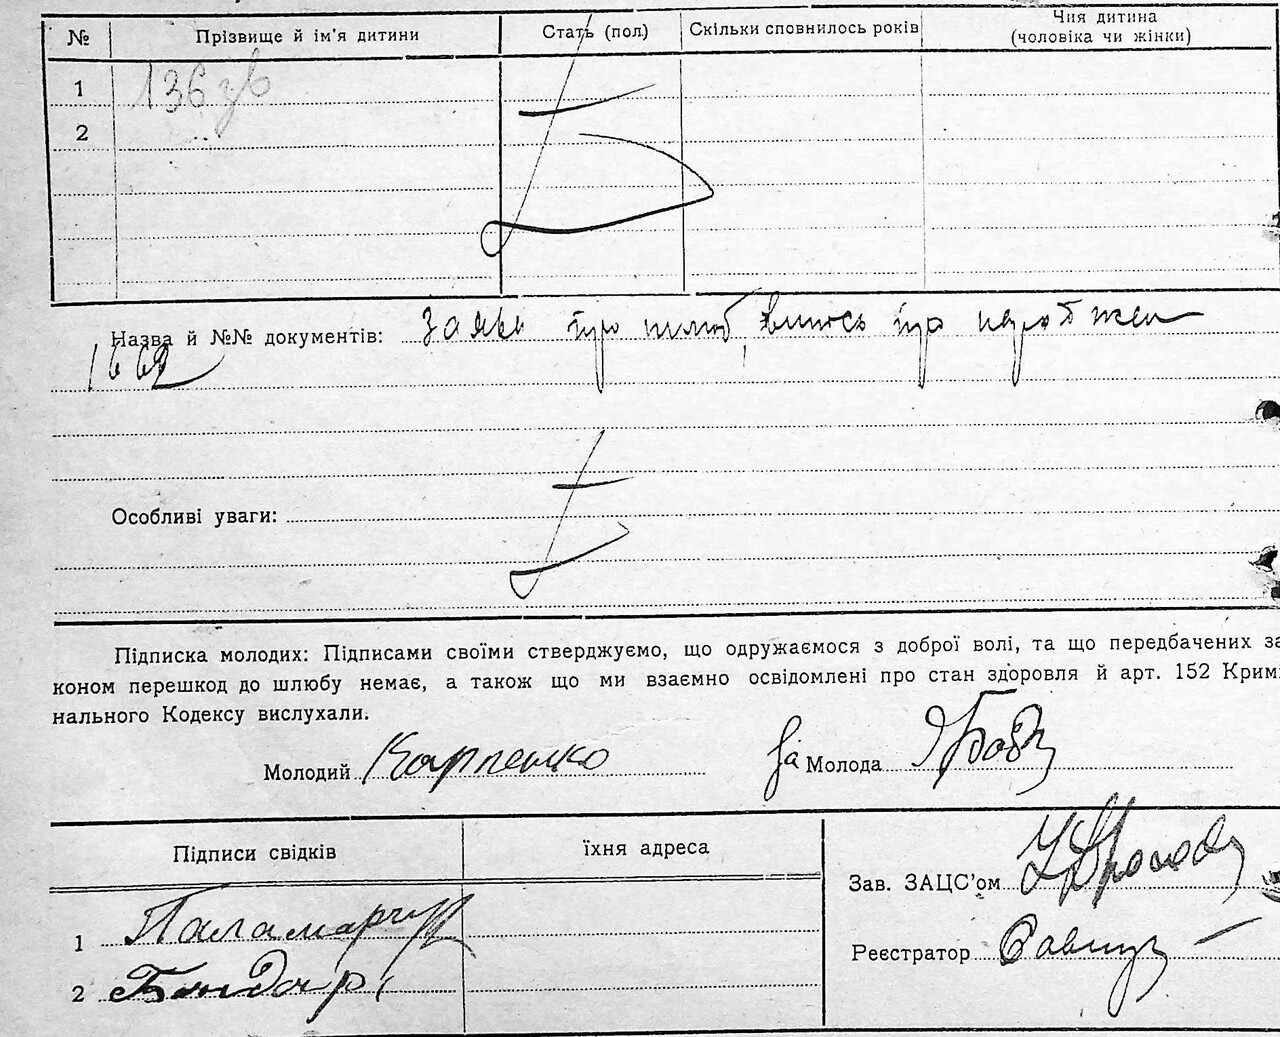 № Прізвище й ім'я дитини Стать (пол.) Скільки сповнилось років Чия дитина (чоловіка чи жінки)
1 136 зв
2
Назва й №№ документів: заяви про шлюб,
1662
Особливі уваги:
Підписка молодих: Підписами своїми стверджуємо, що одружаємося з доброї волі, та що передбачених за
коном перешкод до шлюбу немає, а також що ми взаємно освідомлені про стан здоровля й арт. 152 Крим
нального Кодексу вислухали.
Молодий Карпенко За Молода
Підписи свідків їхня адреса
Зав. ЗАЦС'ом
1 Паламарчук
Реєстратор
2 Бондар